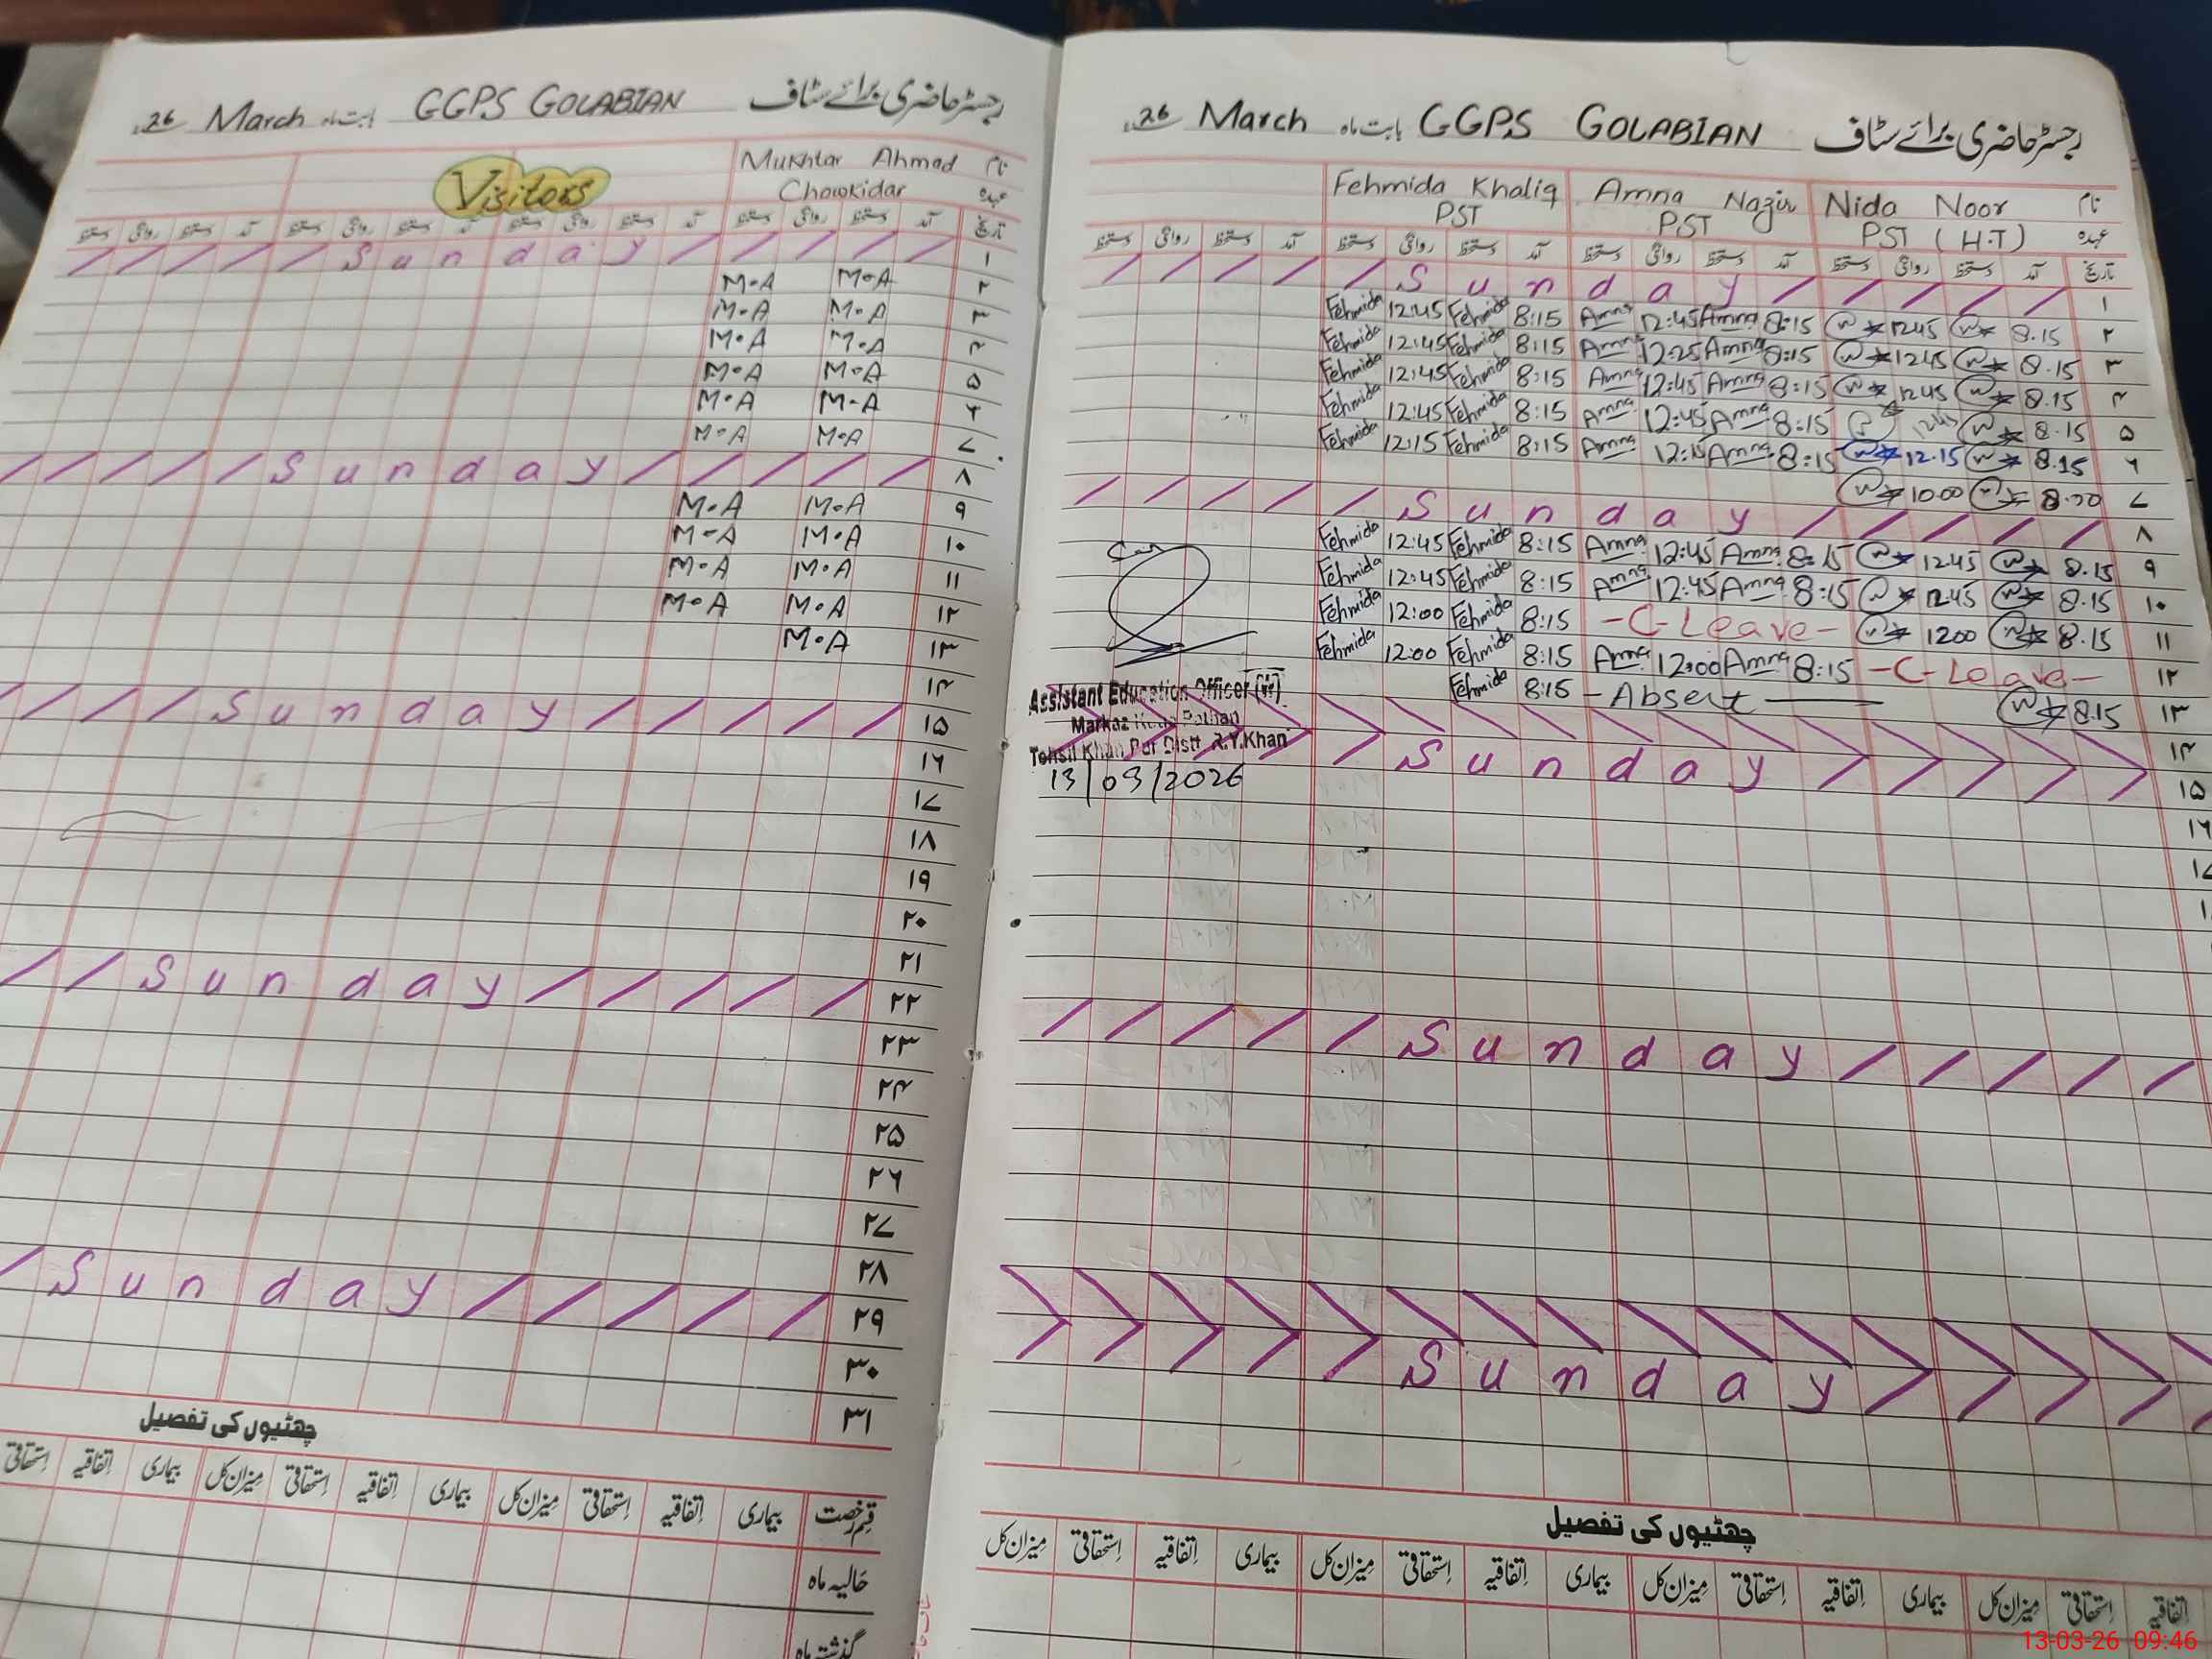 رجسٹر حاضری برائے سٹاف GGPS GOLABIAN بابت ماہ March 26
نام Mukhtar Ahmad
عہدہ Chowkidar
Visitors
تاریخ آمد دستخط روانگی دستخط آمد دستخط روانگی دستخط آمد دستخط روانگی دستخط
۱ Sunday
۲ M.A M.A
۳ M.A M.A
۴ M.A M.A
۵ M.A M.A
۶ M.A M.A
۷ M.A M.A
۸ Sunday
۹ M.A M.A
۱۰ M.A M.A
۱۱ M.A M.A
۱۲ M.A M.A
۱۳ M.A
۱۴
۱۵ Sunday
۱۶
۱۷
۱۸
۱۹
۲۰
۲۱
۲۲ Sunday
۲۳
۲۴
۲۵
۲۶
۲۷
۲۸
۲۹ Sunday
۳۰
۳۱
چھٹیوں کی تفصیل
قسم رخصت بیماری اتفاقیہ استحقاقی میزان کل بیماری اتفاقیہ استحقاقی میزان کل بیماری اتفاقیہ استحقاقی
حالیہ ماہ
گذشتہ ماہ
رجسٹر حاضری برائے سٹاف GGPS GOLABIAN بابت ماہ March 26
نام Nida Noor Amna Nazir Fehmida Khaliq
عہدہ PST (H.T) PST PST
تاریخ آمد دستخط روانگی دستخط آمد دستخط روانگی دستخط آمد دستخط روانگی دستخط آمد دستخط روانگی دستخط
۱ Sunday
Fehmida 12:45 Fehmida 8:15 Amna 12:45 Amna 8:15 1245 8.15 ۲
Fehmida 12:45 Fehmida 8:15 Amna 12:25 Amna 8:15 1245 8.15 ۳
Fehmida 12:45 Fehmida 8:15 Amna 12:45 Amna 8:15 1245 8.15 ۴
Fehmida 12:45 Fehmida 8:15 Amna 12:45 Amna 8:15 8.15 ۵
Fehmida 12:15 Fehmida 8:15 Amna 12:15 Amna 8:15 12.15 8.15 ۶
10.00 ۷
Sunday ۸
Fehmida 12:45 Fehmida 8:15 Amna 12:45 Amna 8:15 1245 8.15 ۹
Fehmida 12:45 Fehmida 8:15 Amna 12:45 Amna 8:15 1245 8.15 ۱۰
Fehmida 12:00 Fehmida 8:15 -C-Leave- 1200 8.15 ۱۱
Fehmida 12:00 Fehmida 8:15 Amna 12:00 Amna 8:15 -C-Leave- ۱۲
Fehmida 8:15 -Absent 8.15 ۱۳
Assistant Education Officer (W)
Markaz
Tehsil Khan Pur Distt. R.Y.Khan
13/03/2026
۱۴
Sunday ۱۵
۱۶
Sunday
Sunday
چھٹیوں کی تفصیل
اتفاقیہ استحقاقی میزان کل بیماری اتفاقیہ استحقاقی میزان کل بیماری اتفاقیہ استحقاقی میزان کل بیماری اتفاقیہ استحقاقی میزان کل
13-03-26 09:46